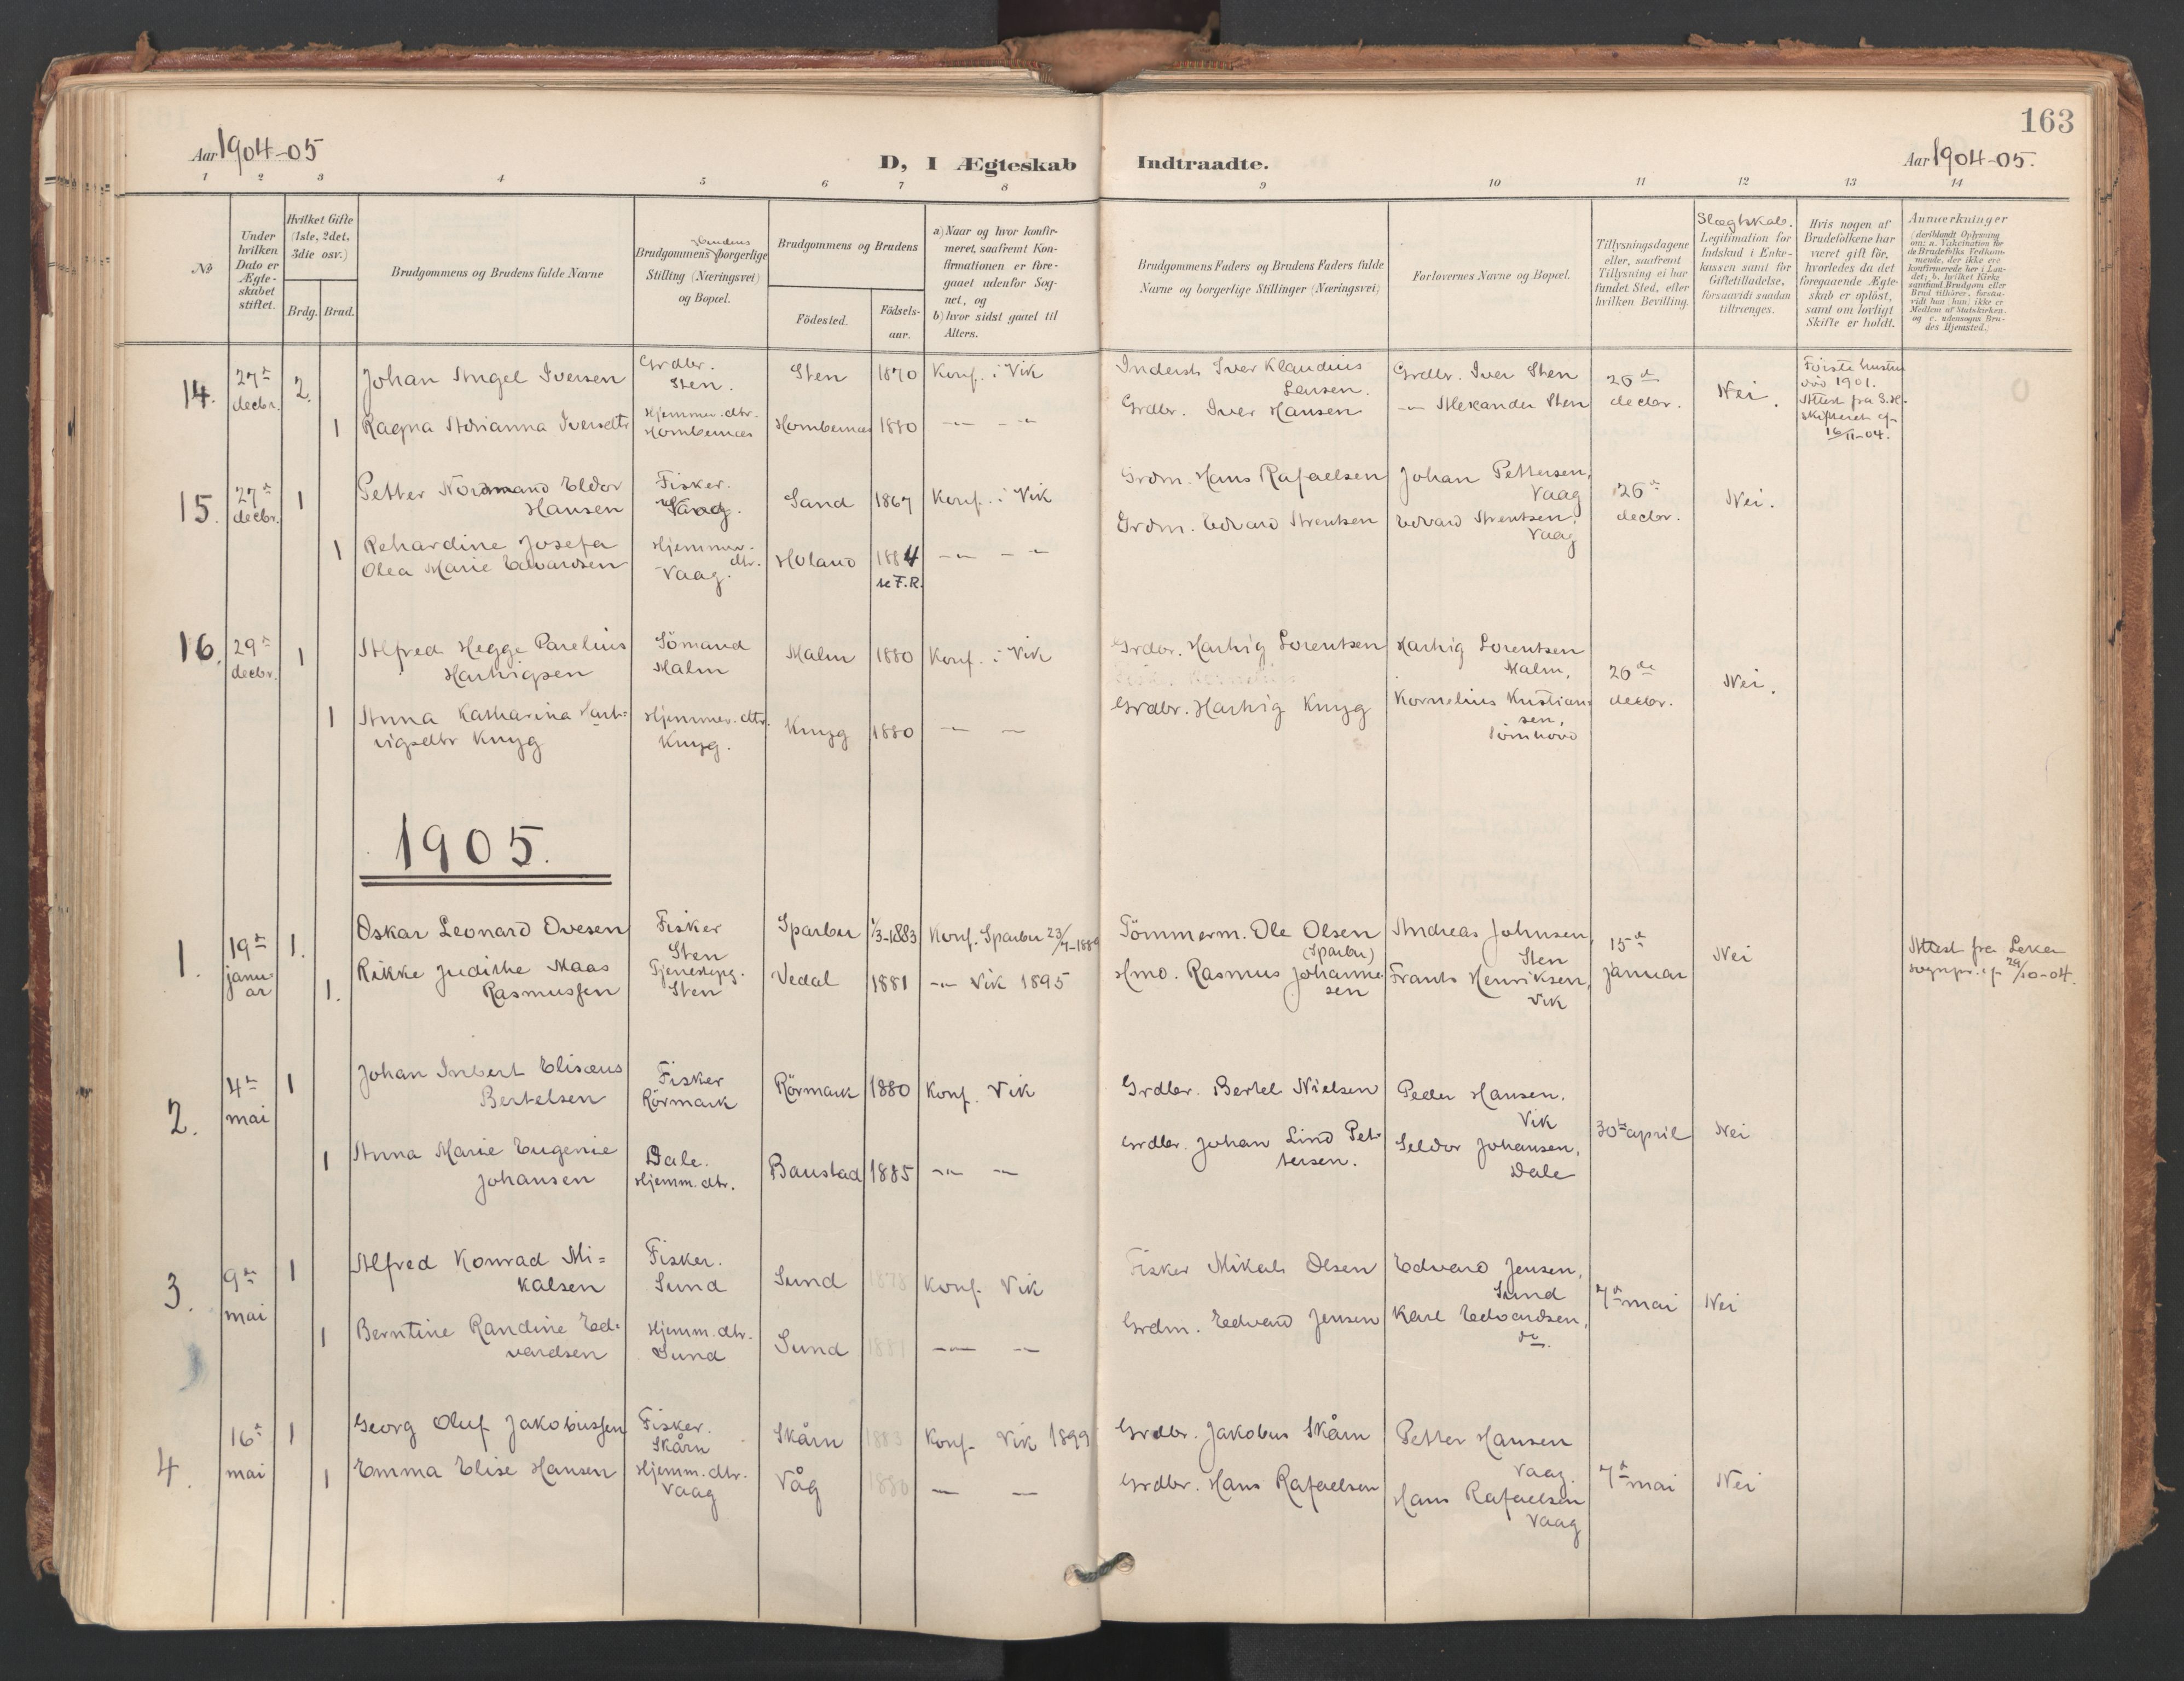 163
Aar 1904-05
D, I Ægteskab Indtraadte.
Aar 1904-05.
1 2 3 4 5 6 7 8 9 10 11 12 13 14
No
Under hvilken Dato er Ægte-skabet stiftet.
Hvilket Gifte (1ste, 2det, 3die osv.)
Brdg. Brud.
Brudgommens og Brudens fulde Navne
Brudgommens og Brudens borgerlige Stilling (Næringsvei) og Bopæl.
Brudgommens og Brudens
Födested.
Födsels-aar.
a) Naar og hvor konfir-
meret, saafremt Kon-
firmationen er fore-
gaaet udenfor Sog-
net, og
b) hvor sidst gaaet til
Alters.
Brudgommens Faders og Brudens Faders fulde
Navne og borgerlige Stillinger (Næringsvei)
Forlovernes Navne og Bopæl.
Tillysningsdagene
eller, saafremt
Tillysning ei har
fundet Sted, efter
hvilken Bevilling.
Slægtskab.
Legitimation for
Indskud i Enke-
kassen samt for
Giftetilladelse,
forsaavidt saadan
tiltrænges.
Hvis nogen af
Brudefolkene har
været gift för,
hvorledes da det
foregaaende Ægte-
skab er oplöst,
samt om lovligt
Skifte er holdt.
Anmærkninger
(deriblandt Oplysning
om: a. Vakcination for
de Brudefolks Vedkom-
mende, der ikke ere
konfirmerede her i Lan-
det; b. hvilket Kirke-
samfund Brudgom eller
Brud tilhörer, forsaa-
vidt han (hun) ikke er
Medlem af Statskirken,
og c. udensogns Bru-
des Hjemsted.
14. 27de decbr. 2. Johan Angel Iversen Grdbr. Sten. Sten 1870 Konf. i Vik Inderst Iver Klaudius Larsen. Grdbr. Iver Sten 26de decbr. Nei.
Förste hustru
död 1901.
Attest fra S.H.
skifteret af
16/11-04.
1 Ragna Adrianna Iversdtr Hjemmev. dtr. Hombernæs Hombernæs 1880 -"- -"- Grdbr. Iver Hansen -"- Alexander Sten
15. 27de decbr. 1 Petter Nordmand Eldor Hansen Fisker. Vaag. Sand 1867 Konf. i Vik Grdm. Hans Rafaelsen Johan Pettersen, Vaag 26de decbr. Nei.
1 Rehardine Josefa Olea Marie Edvardsen Hjemmev. dtr. Vaag. Holand 1884 se F.R. -"- -"- Grdm. Edvard Arentsen Edvard Arentsen, Vaag
16. 29de decbr. 1 Alfred Hegge Parelius Hartvigsen Sömand Malm Malm 1880 Konf. i Vik Grdbr. Hartvig Lorentsen Hartvig Lorentsen Malm, 26de decbr. Nei.
1 Anna Katharina Hart=vigsdtr Knyg Hjemmev. dtr. Knyg. Knyg 1880 -"- - Grdbr. Hartvig Knyg Kornelius Kristiansen,
1905.
1. 19de januar 1. Oskar Leonard Ovesen Fisker Sten Sparbu 1/3-1883 Konf. Sparbu Tömmerm. Ole Olsen (Sparbu) Andreas Johnsen, Sten 15de januar Nei
Attest fra Leka
sognpr. af 29/10-04.
1. Rikke Judithe Maas Rasmussen Tjenestpg. Sten Vedal 1881 -"- Vik 1895 Hmd. Rasmus Johannesen Frants Henriksen, Vik
2. 4de mai 1 Johan Inbert Elisæus Bertelsen Fisker Rörmark Rörmark 1880 Konf. Vik Grdbr. Bertel Nielsen Peder Hansen. Vik 30te april Nei
1 Anna Marie Eugenie Johansen Dale. Hjemm. dtr. Baustad 1885 -"- -"- Grdbr. Johan Lind Pettersen. Seldor Johansen, Dale
3. 9de mai 1 Alfred Konrad Mi=kalsen Fisker. Sund Sund 1878 Konf. Vik Fisker Mikal Olsen Edvard Jensen, Sund 7de mai Nei
1 Berntine Randine Ed=vardsen Hjemm. dtr. Sund Sund 1881 -"- -"- Grdm. Edvard Jensen Karl Edvardsen, do.
4. 16de mai 1 Georg Oluf Jakobussen Fisker. Skårn Skårn 1883 Konf. Vik 1899 Grdbr. Jakobus Skårn Petter Hansen Vaag. 7de mai Nei
1 Emma Elise Hansen Hjemm. dtr. Vaag Våg 1880 - - Grdbr. Hans Rafaelsen Hans Rafaelsen Vaag